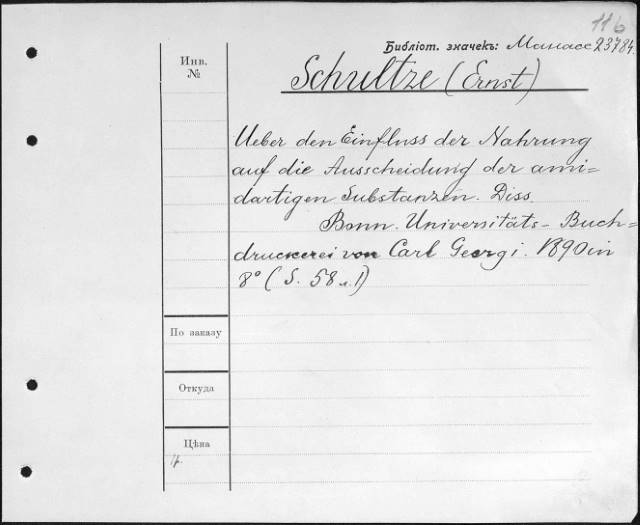 116
Библіот. значекъ: Манасс 23784.
Инв.
№
Schultze (Ernst)
Ueber den Einfluss der Nahrung
auf die Ausscheidung der ami=
dartigen Substanzen. Diss.
Bonn. Universitäts-Buch=
druckerei von Carl Georgi. 1890 in
8° (S. 58 л. 1)
По заказу
Откуда
Цѣна